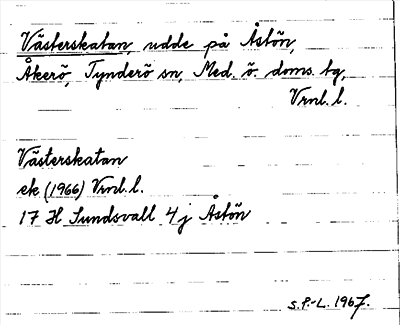 Västerskatan, udde på Åstön,
Åkerö, Tynderö sn, Med. ö. doms. tg,
Vrnl. l.
Västerskatan
ek (1966) Vrnl. l.
17 H Sundsvall 4 j Åstön
S.P.-L. 1967.